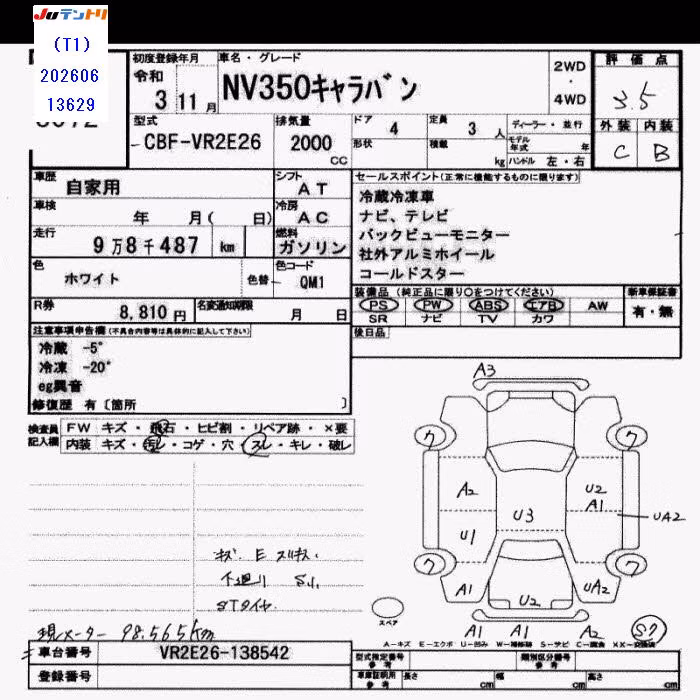 JUテントリ
(T1)
202606
13629
初度登録年月
令和
3 11月
車名・グレード
NV350キャラバン
2WD
・
4WD
評価点
3.5
外装 内装
C B
型式
CBF-VR2E26
排気量
2000
cc
ドア 4
形状
定員 3 人
積載 kg
ディーラー・並行
モデル年式 年
ハンドル 左・右
車歴
自家用
シフト
AT
車検
年 月( 日)
冷房
AC
走行
9万8千487 km
燃料
ガソリン
色
ホワイト
色替
色コード
QM1
R券
8,810円
名変通知期限
月 日
セールスポイント(正常に機能するものに限ります)
冷蔵冷凍車
ナビ、テレビ
バックビューモニター
社外アルミホイール
コールドスター
装備品(純正品に限り○をつけてください)
新車保証書
PS PW ABS エアB AW
SR ナビ TV カワ
有・無
後日品
注意事項申告欄(不具合内容等は具体的に記入して下さい)
冷蔵 -5°
冷凍 -20°
eg異音
修復歴 有〔箇所 〕
検査員記入欄
FW キズ・飛石・ヒビ割・リペア跡・×要
内装 キズ・汚レ・コゲ・穴・スレ・キレ・破レ
A3
ワ ワ
A2 U2
A1
U3
UA2
U1
ワ ワ
A1 UA2
U2
A1 A1 A2
スペア
キズ E スリキズ
下廻り Sル
STタイヤ
現メーター 98.565km
車台番号
VR2E26-138542
登録番号
型式指定番号
参考
類別区分番号
参考
車庫証明用
参考
長さ cm 幅 cm 高さ cm